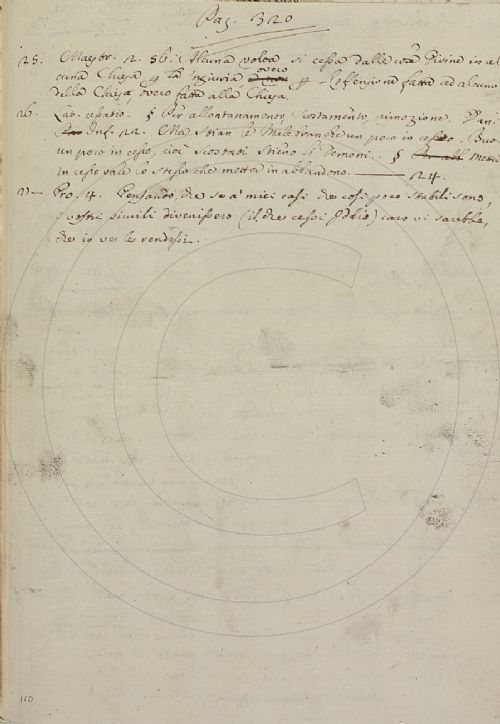 Pag. 320
25. Maestr. 2. 56. Alcuna volta si cessa dalle cose Divine in al
cuna Chiesa p la ingiuria overo offensione fatta ad alcuno
della Chiesa, overo fatta alla Chiesa.
26. Lat. cessatio. § Per allontanamento, scostamento, rimozione. Dan.
Inf. 22. Ma stian i Malebranche un poco in cesso. But.
un poco in cesso, cioè scostati stieno i Demoni. §
in cesso vale lo stesso che mettere in abbandono. 24.
27 — Pros. 4. Pensando, che se a' miei casi che così poco stabili sono,
i vostri simili divenissero (il che cessi Iddio) caro vi sarebbe,
che io ve le rendessi.
110